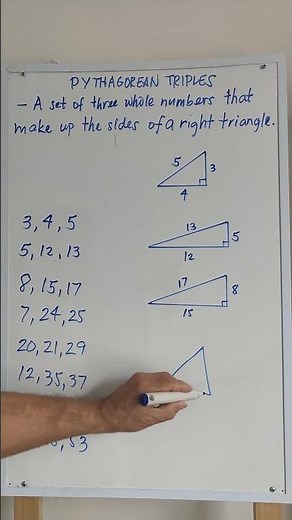 PYTHAGOREAN TRIPLES
- A set of three whole numbers that
make up the sides of a right triangle.
5
3
4
3, 4, 5
13
5
12
5, 12, 13
17
8
15
8, 15, 17
7, 24, 25
20, 21, 29
12, 35, 37
53